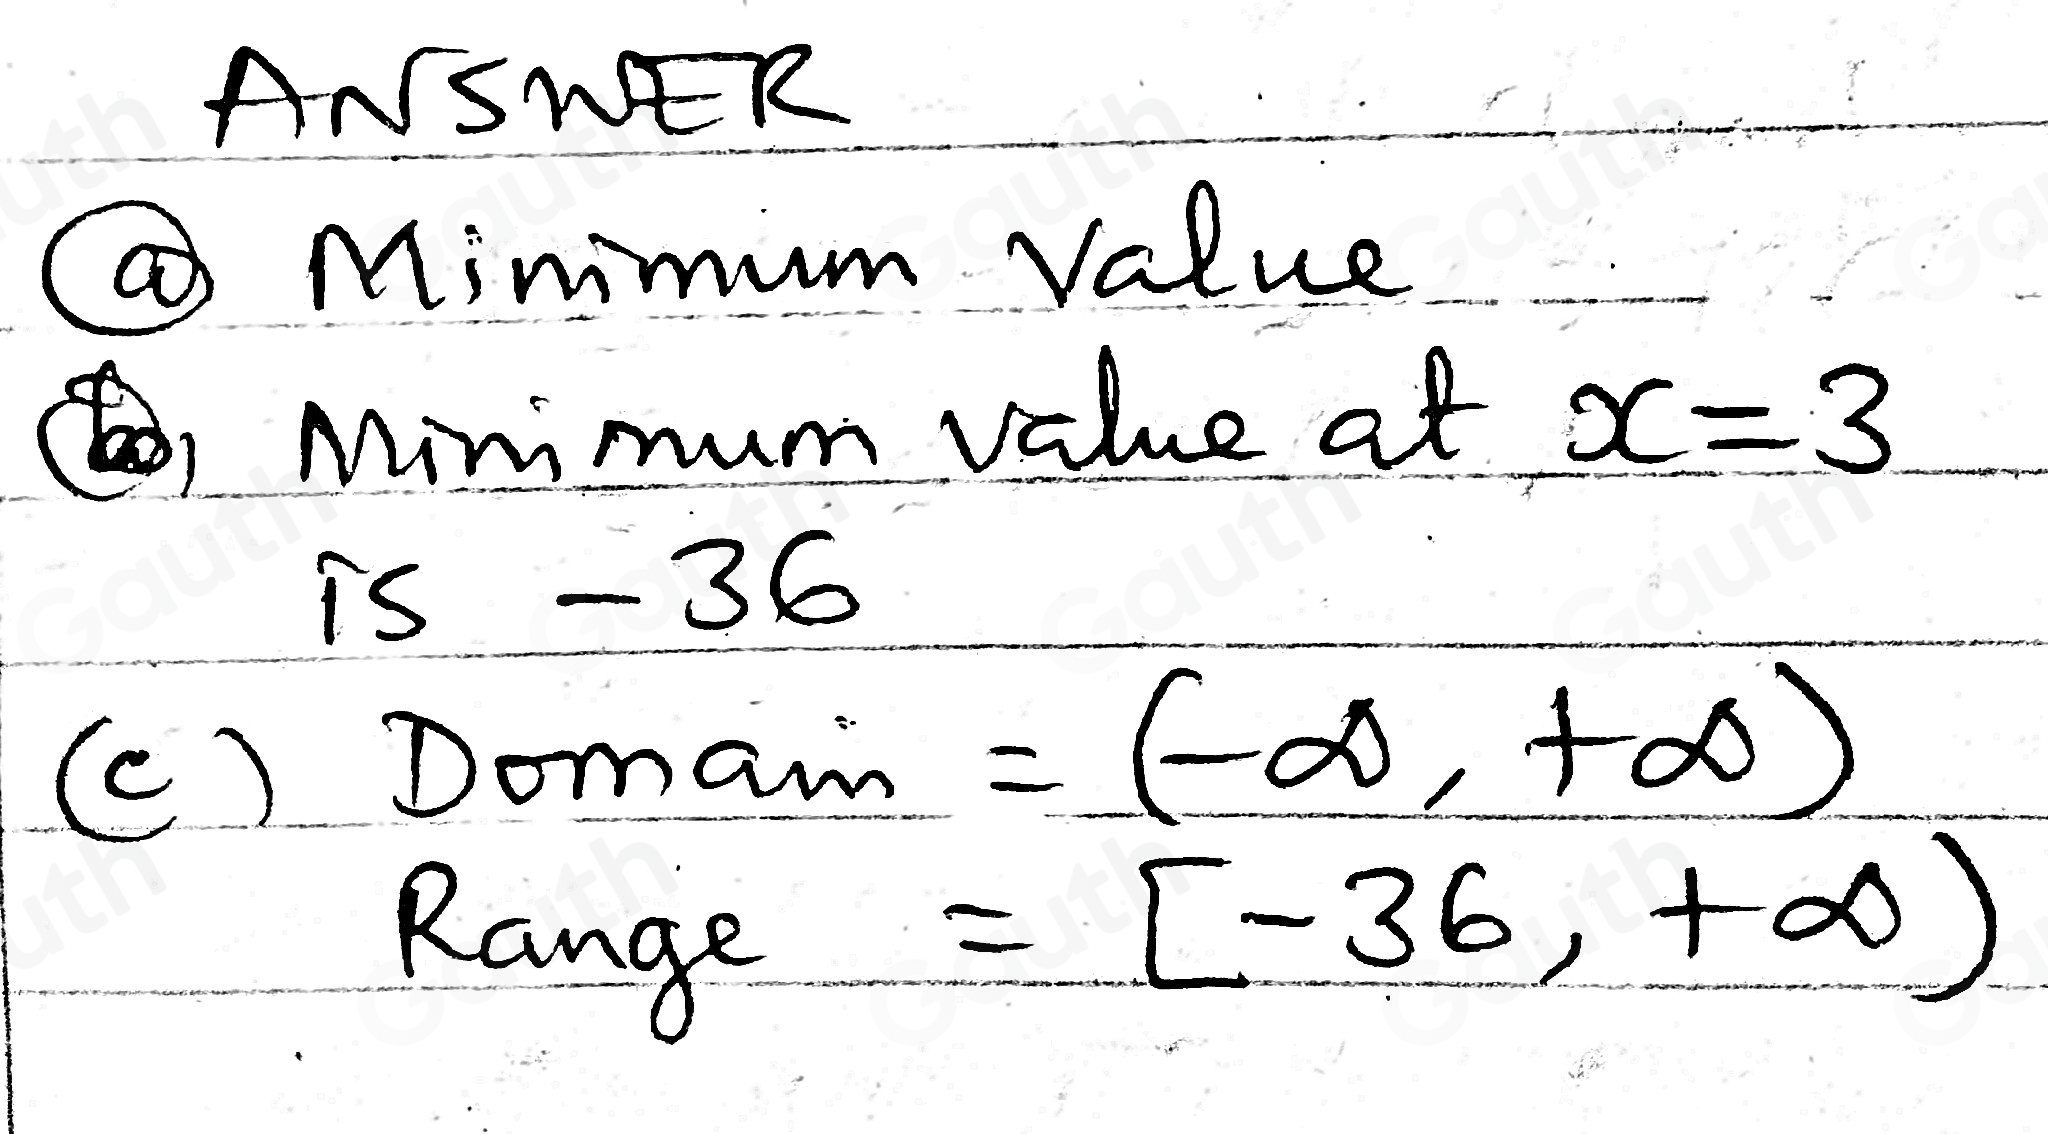 ANSWER
(a) Minimum value
(b) Minimum value at x = 3
is - 36
(c) Domain = (-∞, +∞)
Range = [-36, +∞)